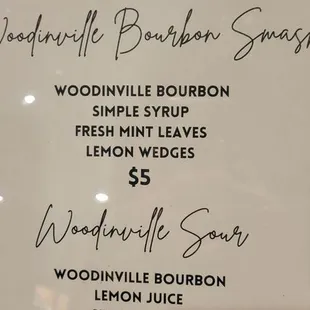 Woodinville Bourbon Smash
WOODINVILLE BOURBON
SIMPLE SYRUP
FRESH MINT LEAVES
LEMON WEDGES
$5
Woodinville Sour
WOODINVILLE BOURBON
LEMON JUICE